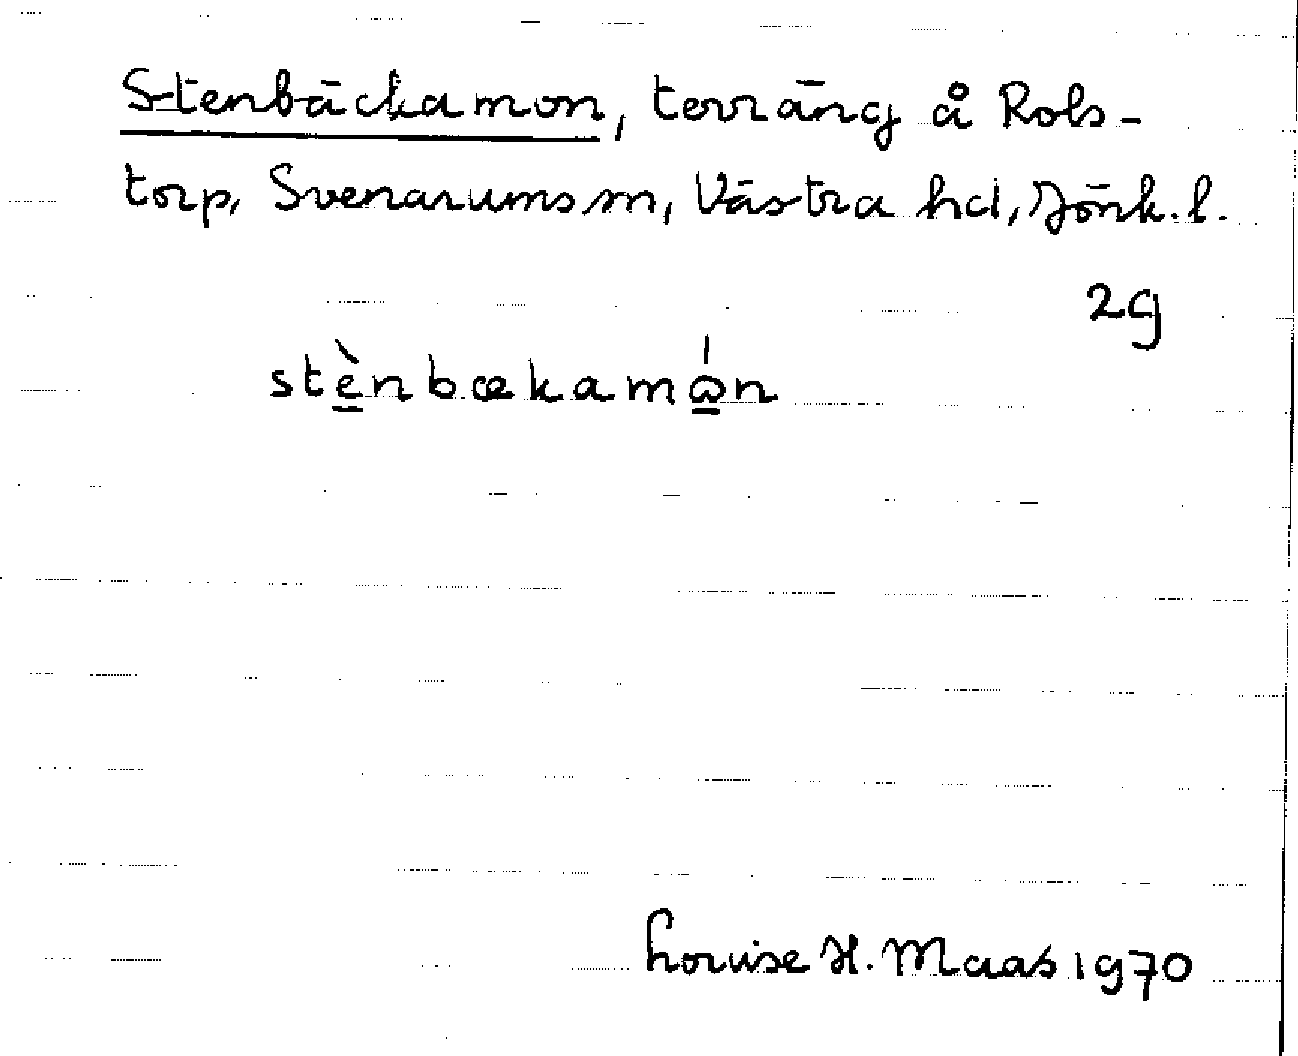 Stenbäckamon, terräng å Rols-
torp, Svenarums sn, Västra hd, Jönk. l.
2g
stè̱nbækamó̱n
Louise H. Maas 1970